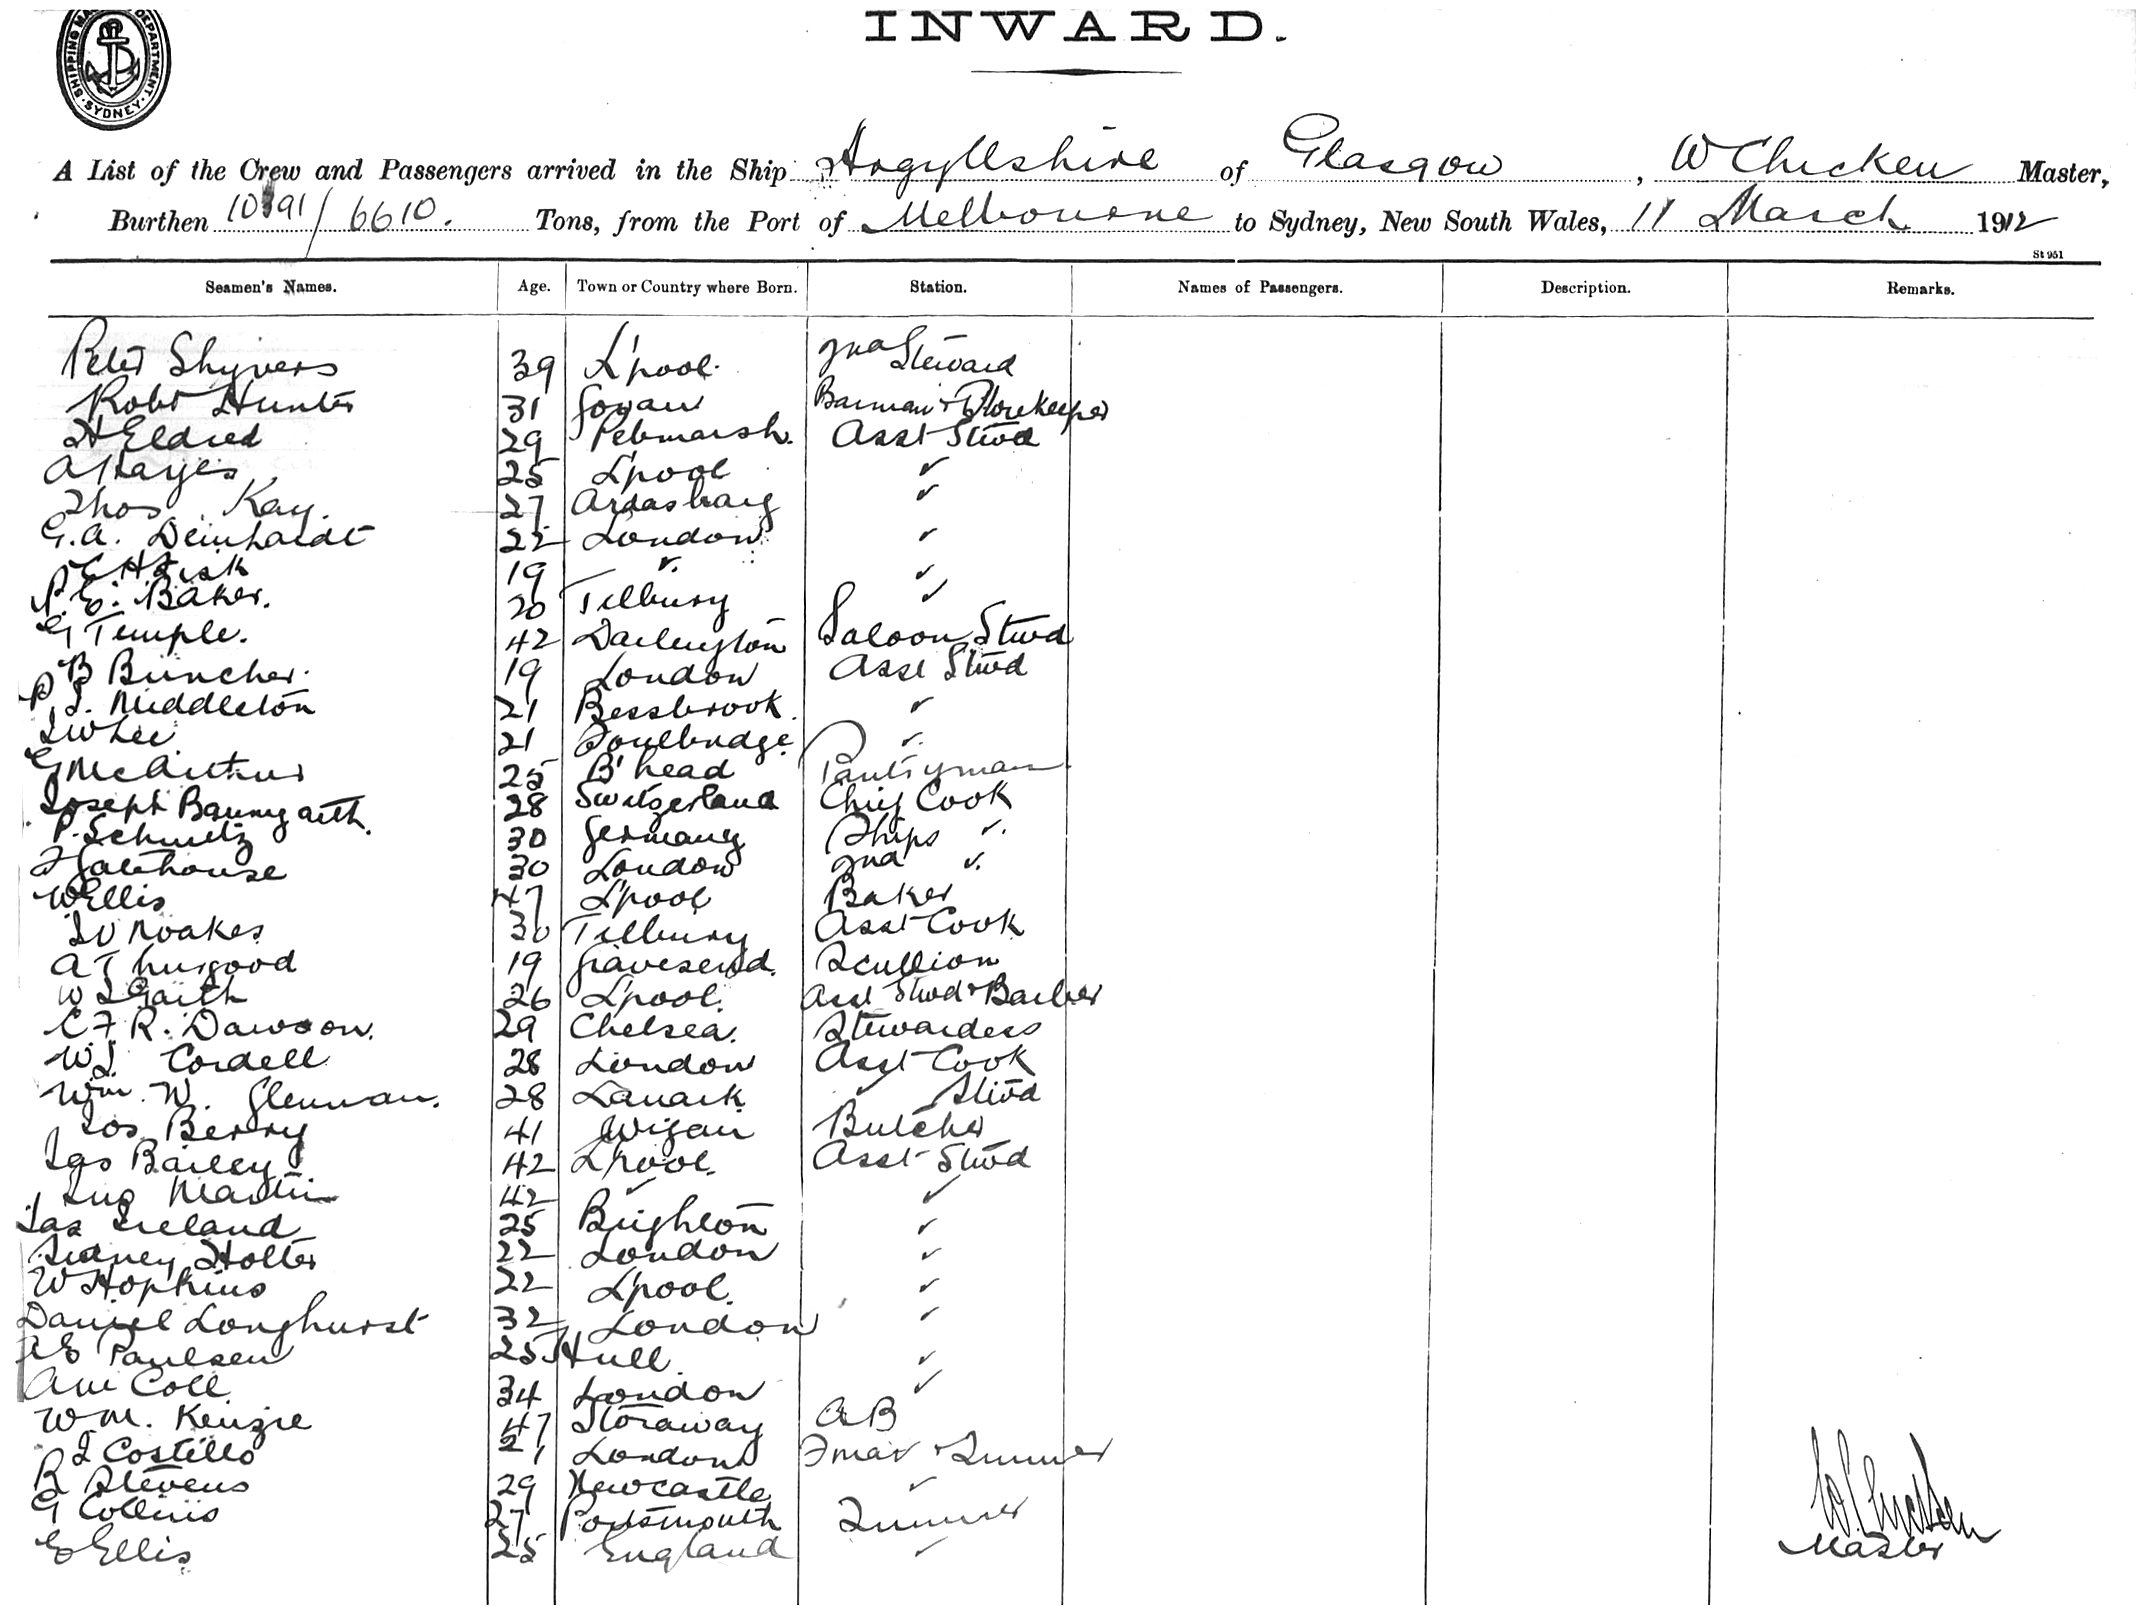 SHIPPING MASTER'S DEPARTMENT SYDNEY
INWARD.
A List of the Crew and Passengers arrived in the Ship Argyllshire of Glasgow, W Chicken Master,
Burthen 10391/6610. Tons, from the Port of Melbourne to Sydney, New South Wales, 11 March 1912
St 951
Seamen's Names. Age. Town or Country where Born. Station. Names of Passengers. Description. Remarks.
Peter Shyvers 39 L'pool. 2nd Steward
Robt Hunter 31 Govan Barman & Storekeeper
H Eldred 29 Pebmarsh. Asst Stwd
A Hayes 25 L'pool ✓
Thos Kay. 27 ✓
G.A. Deinhardt 22 London ✓
E H Fisk 19 ✓ ✓
P. E. Baker. 20 Tilbury ✓
G Temple. 42 Darlington Saloon Stwd
B Buncher. 19 London Asst Stwd
P J. Middleton 21 Bessbrook. ✓
J W Lee 21 Foulbridge. ✓
G McArthur 25 B'head Pantryman
Joseph Baumgarth. 28 Switzerland Chief Cook
P. Schmitz 30 Germany Ships ✓
F Gatehouse 30 London 2nd ✓
W Ellis 47 L'pool Baker
Noakes 30 Tilbury Asst Cook
A Thurgood 19 Gravesend. Scullion
W J Garth 26 L'pool. Asst Stwd & Barber
C. F R. Dawson. 29 Chelsea. Stewardess
W J. Cordell 28 London Asst Cook
Wm. W. Glennan. 28 Lanark ✓ Stwd
Jos Berry 41 Wigan Butcher
Jas Bailey 42 L'pool. Asst Stwd
Jno Martin 42 ✓ ✓
Jas Ireland 25 Brighton ✓
Sidney Holter 22 London ✓
W Hopkins 22 L'pool. ✓
Daniel Longhurst 32 London ✓
A E Paulsen 25 Hull ✓
Coll 34 London ✓
W M. Kenzie 47 Storaway AB
J Costello 21 London Fman & Trimmer
R Stevens 29 Newcastle ✓
G Collins 27 Portsmouth Trimmer
E Ellis 25 England ✓
W Chicken
Master